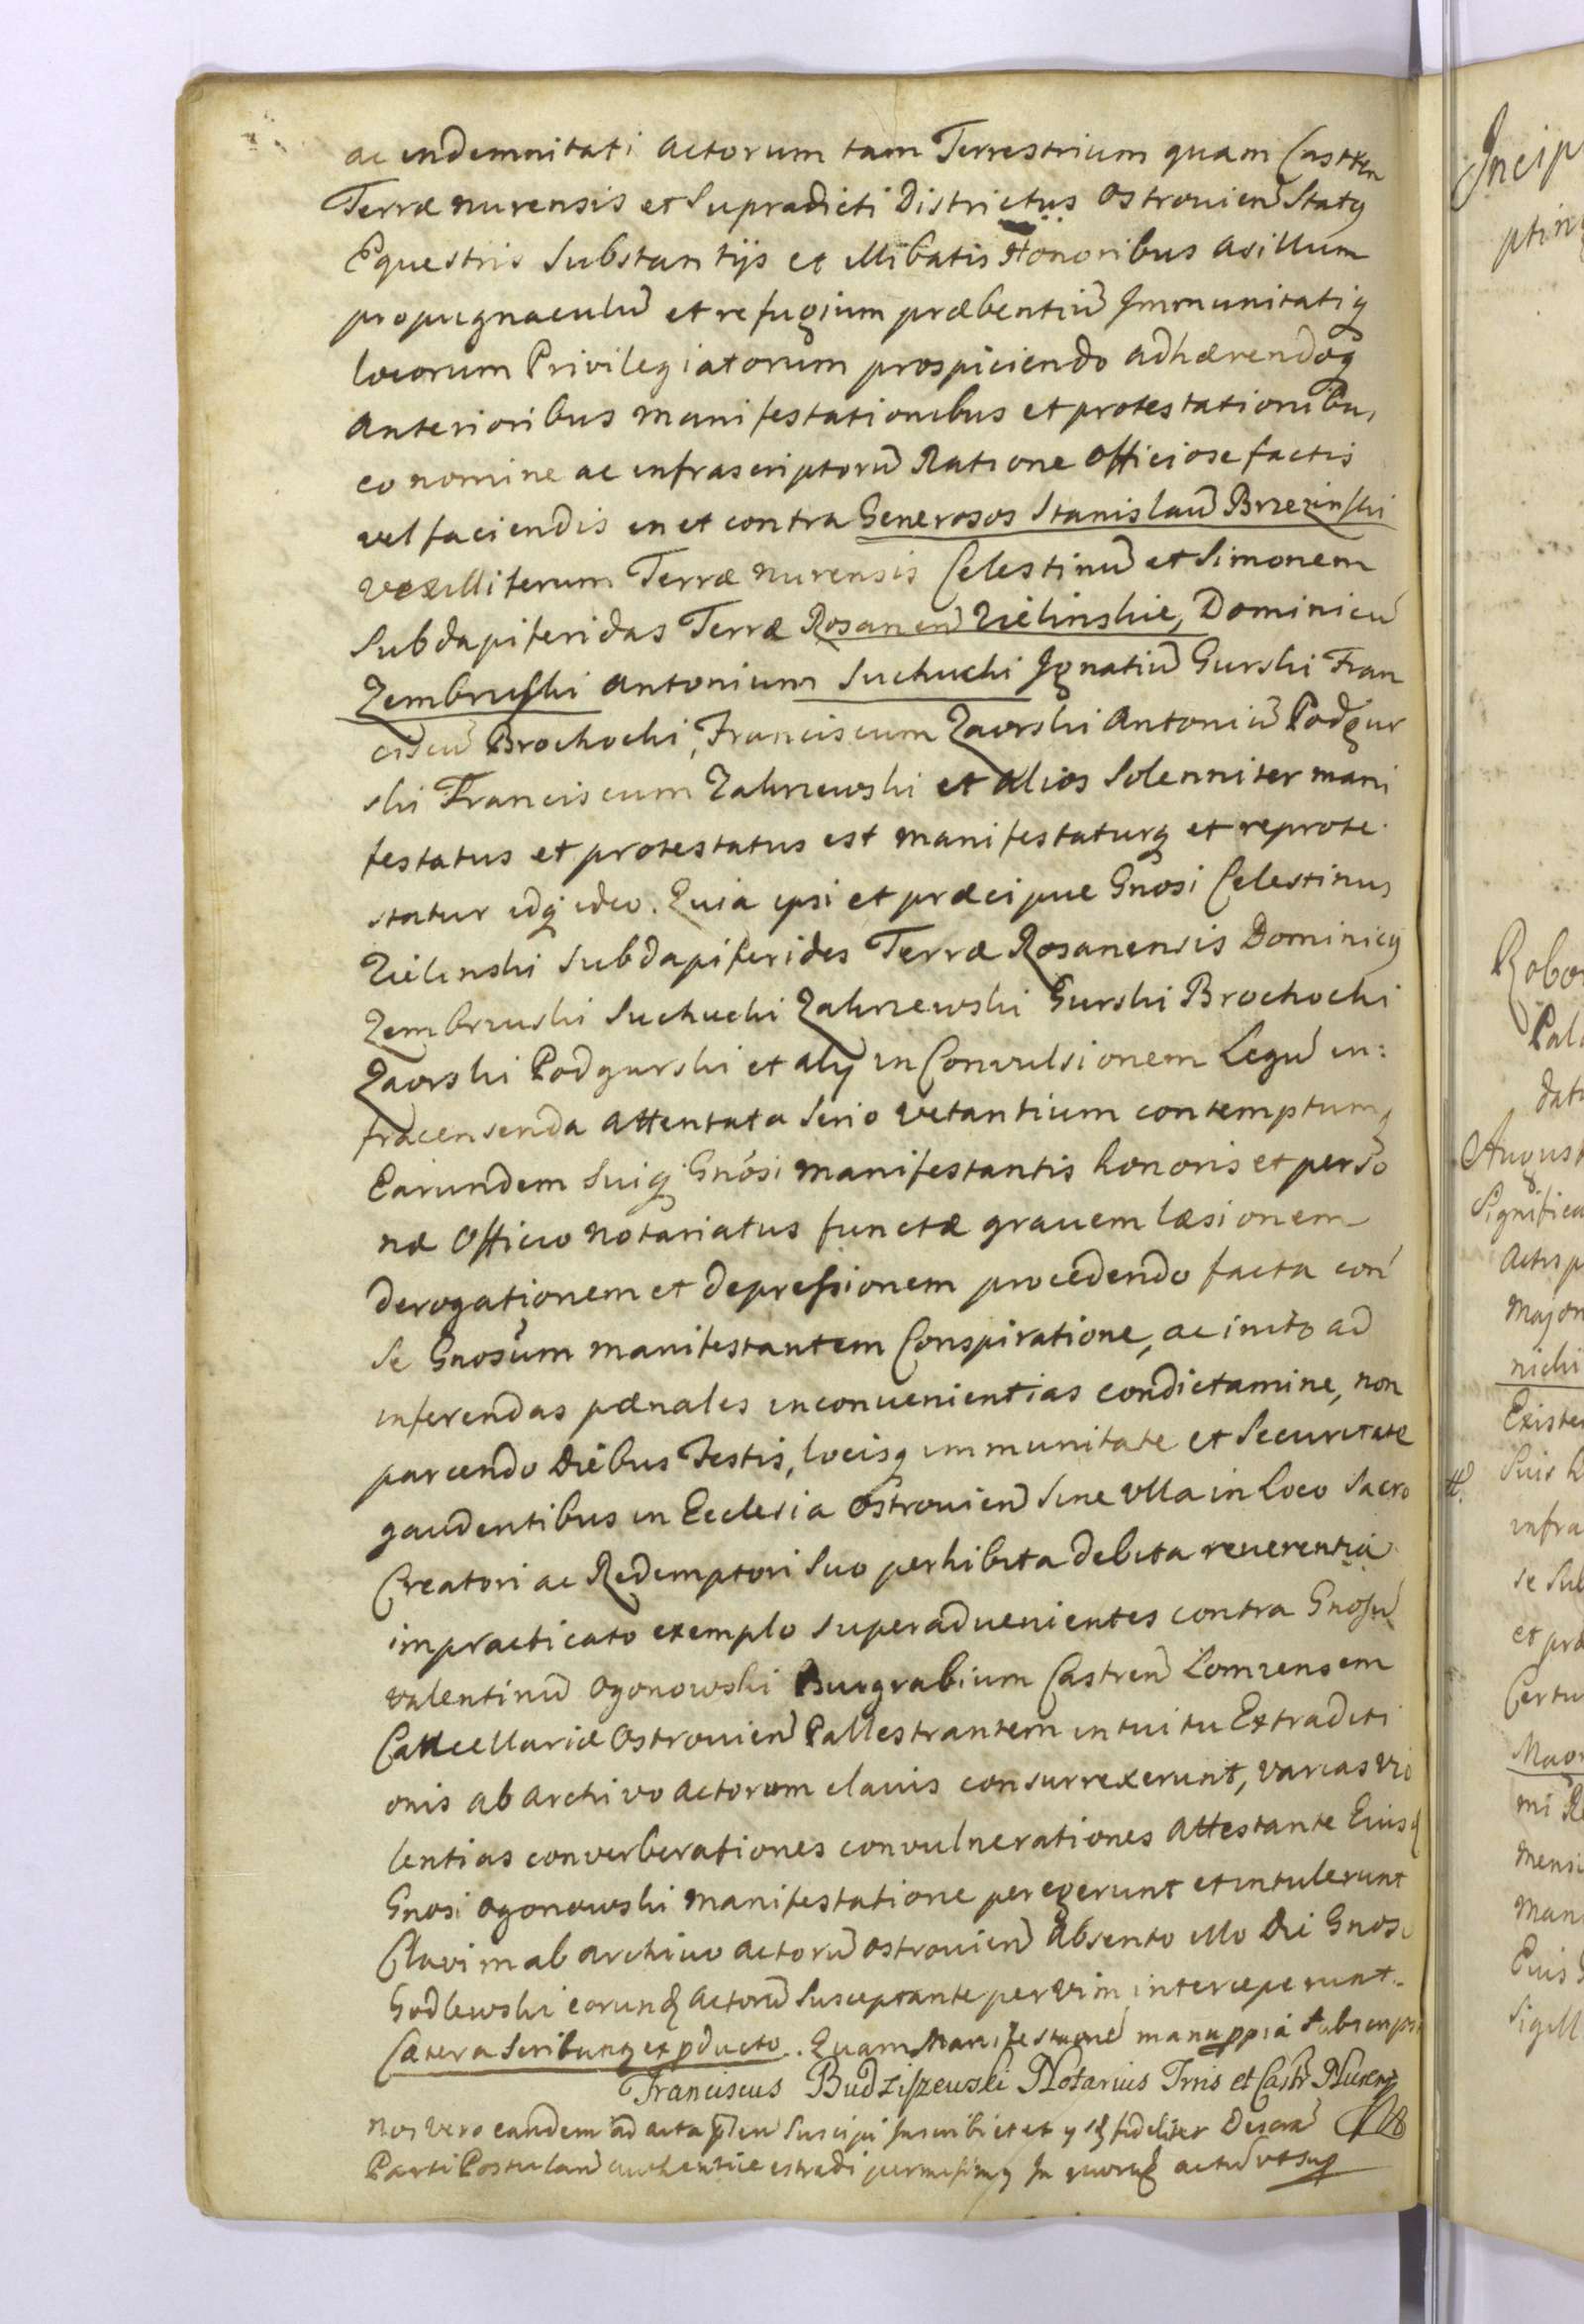 ac indemnitati actorum tam Terrestrium quam Castren
Terræ nurensis et Supradicti Districtus Ostrovien Statq
Equestris Substantijs et illibatis Honoribus asillum
propugnaculu et refugium præbentiu Immunitatiq
locorum Privilegiatorum prospiciendo adhærendoq
anterioribus manifestationibus et protestationibu,
eo nomine ac infrascriptoru Ratione officiose factis
vel faciendis in et contra Generosos Stanislau Brzezinski
vexilliferum Terræ nurensis Celestinu et Simonem
Subdapiferidas Terræ Rosanen Zielinskie, Dominicu
Zembruski antonium Suchucki Ignatiu Gurski Fran
ciscu Brochocki, Franciscum Zaorski Antoniu Podgur
ski Franciscum Zakrzewski et alios Solenniter mani
festatus et protestatus est manifestaturq et reprote
statur idq ideo. Quia ipsi et præcipue Gnosi Celestinus
Zielinski Subdapiferides Terræ Rosanensis Dominicq
Zembruski Suchucki Zakrzewski Gurski Brochocki
Zaorski Podgurski et alij in Convulsionem Legu in:
fracensenda attentata Serio vetantium contemptumq
Earundem Suiq Gnosi manifestantis honoris et perso
næ Officio notariatus functæ grauem læsionem
derogationem et depressionem procedendo facta con
se Gnosum manifestantem Conspiratione, ac inito ad
inferendas pænales inconuenientias condictamine, non
parcendo Diebus Festis, locisq immunitate et Securitate
gaudentibus in Ecclesia Ostrouien Sine Ulla in Loco Sacro
Creatori ac Redemptori Suo perhibita debita reuerentia
impracticato exemplo superaduenientes contra Gnosu
valentinu Ogonowski Burgrabium Castren Lomzensem
Cancellariæ Ostrouien Pallestrantem intuitu Extraditi
onis ab archivo actorum clauis consurrexerunt, varias vio
lentias converberationes convulnerationes attestante Eiusq
Gnosi Ogonowski manifestatione peregerunt et intulerunt
Clavim ab archivo actoru ostrouien absento illo Die Gnosi
Godlewski eorunq actoru susceptante per vim interceperunt.
Cætera Scribunq ex pducto. Quam Manifestatione manu ppia Subscripsi
Franciscus Budziszewski Notarius Trris et Castr Nurens
nos vero eandem ad acta psen Suscipi Inscribi et
Parti Postulan authentice extradi permisimq In quoruq actu ut sup